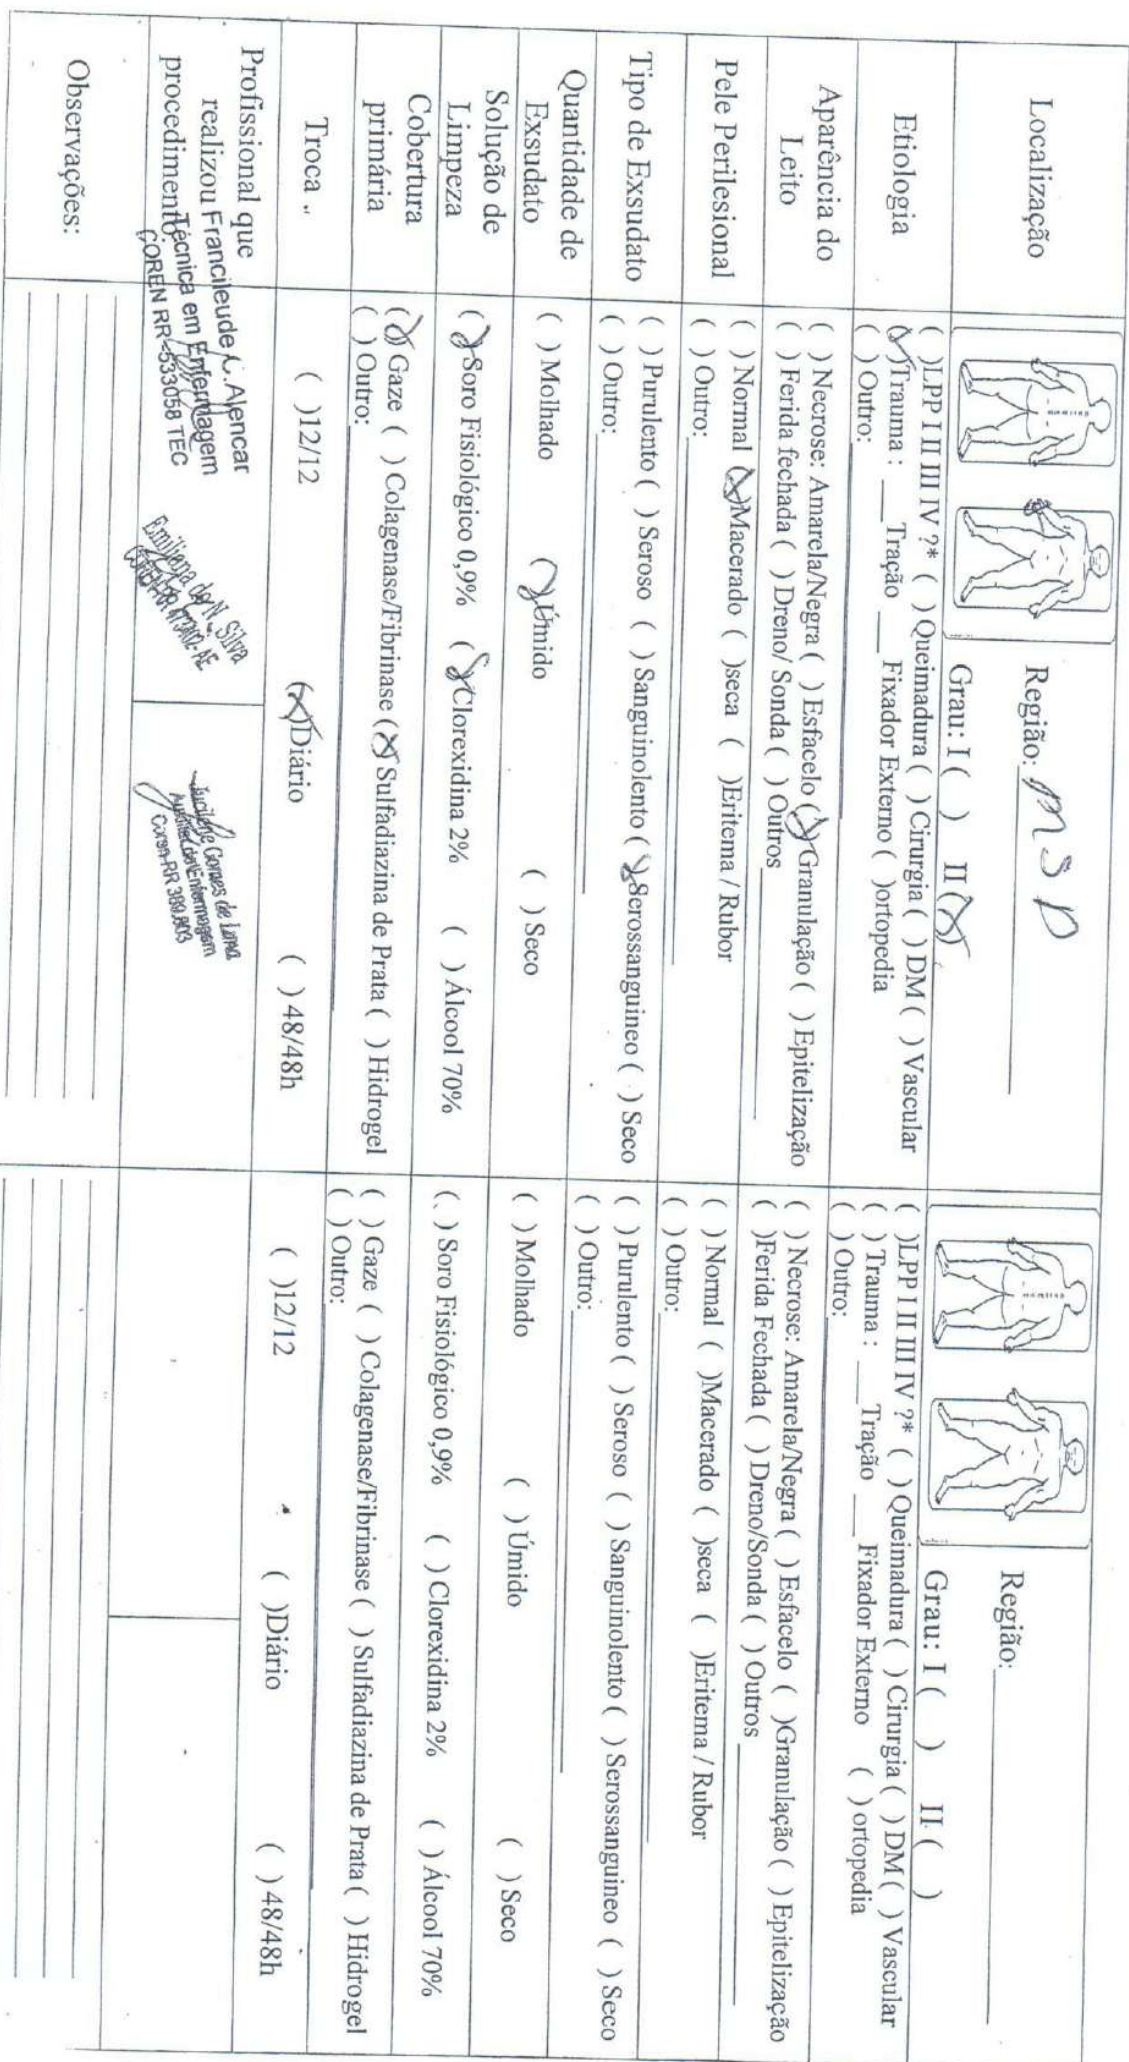 Localização
Região: MSD
Grau: I ( ) II (X)
Região:
Grau: I ( ) II ( )
Etiologia
( )LPP I II III IV ?* ( ) Queimadura ( ) Cirurgia ( ) DM ( ) Vascular
(X)Trauma : ___Tração ___ Fixador Externo ( )ortopedia
( ) Outro:
( )LPP I II III IV ?* ( ) Queimadura ( ) Cirurgia ( ) DM ( ) Vascular
( ) Trauma : ___Tração ___ Fixador Externo ( ) ortopedia
( ) Outro:
Aparência do
Leito
( ) Necrose: Amarela/Negra ( ) Esfacelo (X)Granulação ( ) Epitelização
( ) Ferida fechada ( ) Dreno/ Sonda ( ) Outros
( ) Necrose: Amarela/Negra ( ) Esfacelo ( )Granulação ( ) Epitelização
( )Ferida Fechada ( ) Dreno/Sonda ( ) Outros
Pele Perilesional
( ) Normal (X)Macerado ( )seca ( )Eritema / Rubor
( ) Outro:
( ) Normal ( )Macerado ( )seca ( )Eritema / Rubor
( ) Outro:
Tipo de Exsudato
( ) Purulento ( ) Seroso ( ) Sanguinolento (X) Serossanguineo ( ) Seco
( ) Outro:
( ) Purulento ( ) Seroso ( ) Sanguinolento ( ) Serossanguineo ( ) Seco
( ) Outro:
Quantidade de
Exsudato
( ) Molhado (X)Úmido ( ) Seco
( ) Molhado ( ) Úmido ( ) Seco
Solução de
Limpeza
(X)Soro Fisiológico 0,9% (X)Clorexidina 2% ( ) Álcool 70%
( ) Soro Fisiológico 0,9% ( ) Clorexidina 2% ( ) Álcool 70%
Cobertura
primária
(X)Gaze ( ) Colagenase/Fibrinase (X) Sulfadiazina de Prata ( ) Hidrogel
( ) Outro:
( ) Gaze ( ) Colagenase/Fibrinase ( ) Sulfadiazina de Prata ( ) Hidrogel
( ) Outro:
Troca
( )12/12 (X)Diário ( ) 48/48h
( )12/12 ( )Diário ( ) 48/48h
Profissional que
realizou
procedimento
Francileude C. Alencar
Técnica em Enfermagem
COREN RR-533058 TEC
Emiliana de N. Silva
Jucilene Gomes de Lima
Auxiliar de Enfermagem
Coren-RR 389.803
Observações: